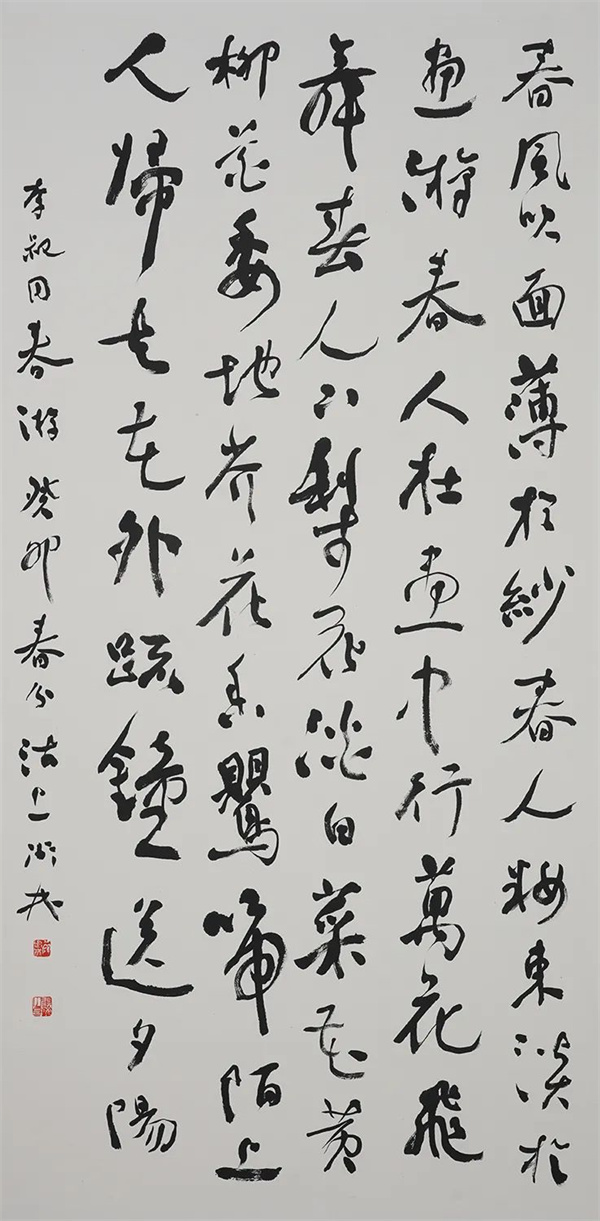 春風吹面薄於紗春人粧束淡於
畫游春人在畫中行萬花飛
舞春人下梨花淡白菜花黃
柳花委地芥花香鶯啼陌上
人歸去花外疏鐘送夕陽
李叔同春游癸卯春分沽上